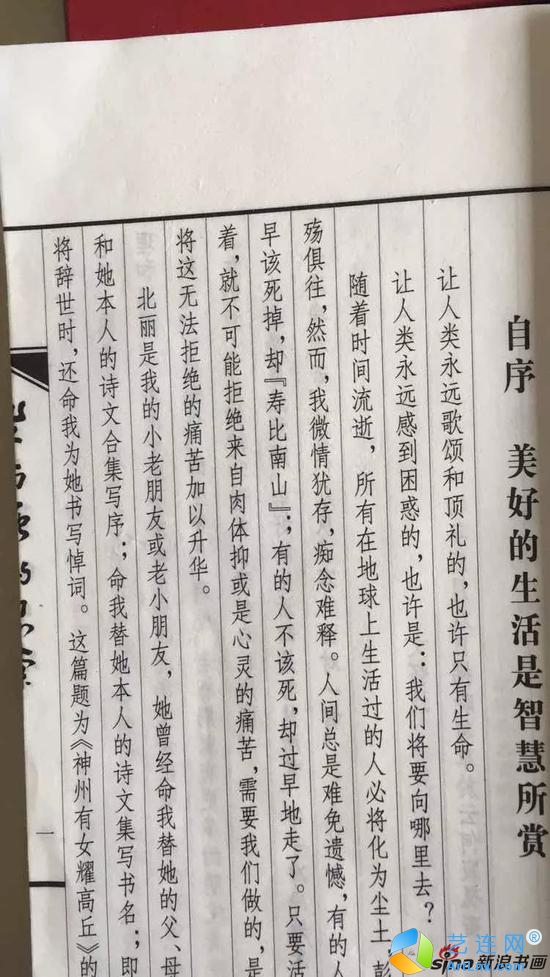 自序　美好的生活是智慧所赏
让人类永远歌颂和顶礼的，也许只有生命。
让人类永远感到困惑的，也许是：我们将要向哪里去？
随着时间流逝，所有在地球上生活过的人必将化为尘土，彭
殇俱往，然而，我微情犹存，痴念难释。人间总是难免遗憾，有的人
早该死掉，却『寿比南山』；有的人不该死，却过早地走了。只要活
着，就不可能拒绝来自肉体抑或是心灵的痛苦，需要我们做的，是
将这无法拒绝的痛苦加以升华。
北丽是我的小老朋友或老小朋友，她曾经命我替她的父、母
和她本人的诗文合集写序；命我替她本人的诗文集写书名；即
将辞世时，还命我为她书写悼词。这篇题为《神州有女耀高丘》的
一
艺连网
sina新浪书画